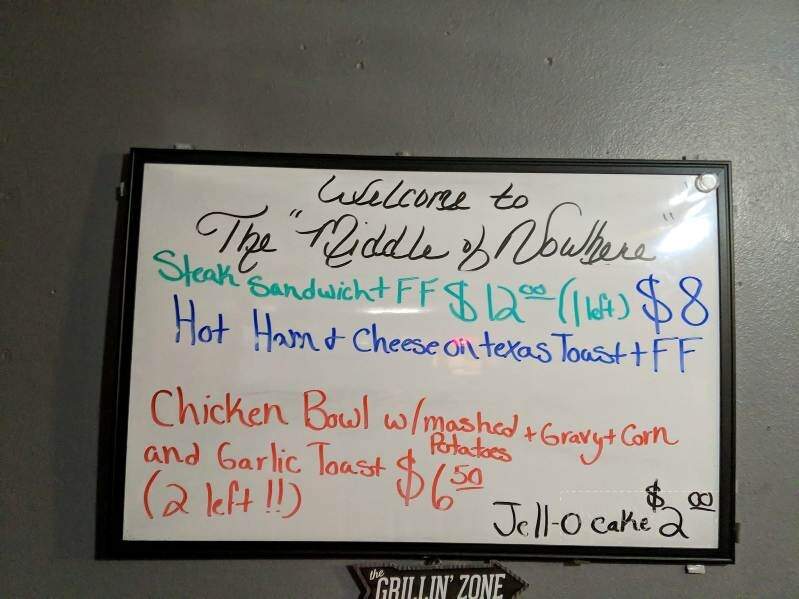 Welcome to
The "Middle of Nowhere"
Steak Sandwich + FF $12.00 (1 left) $8
Hot Ham + Cheese on texas Toast + FF
Chicken Bowl w/mashed + Gravy + Corn
Potatoes
and Garlic Toast $6.50
(2 left!!)
Jell-O cake $2.00
the
GRILLIN' ZONE